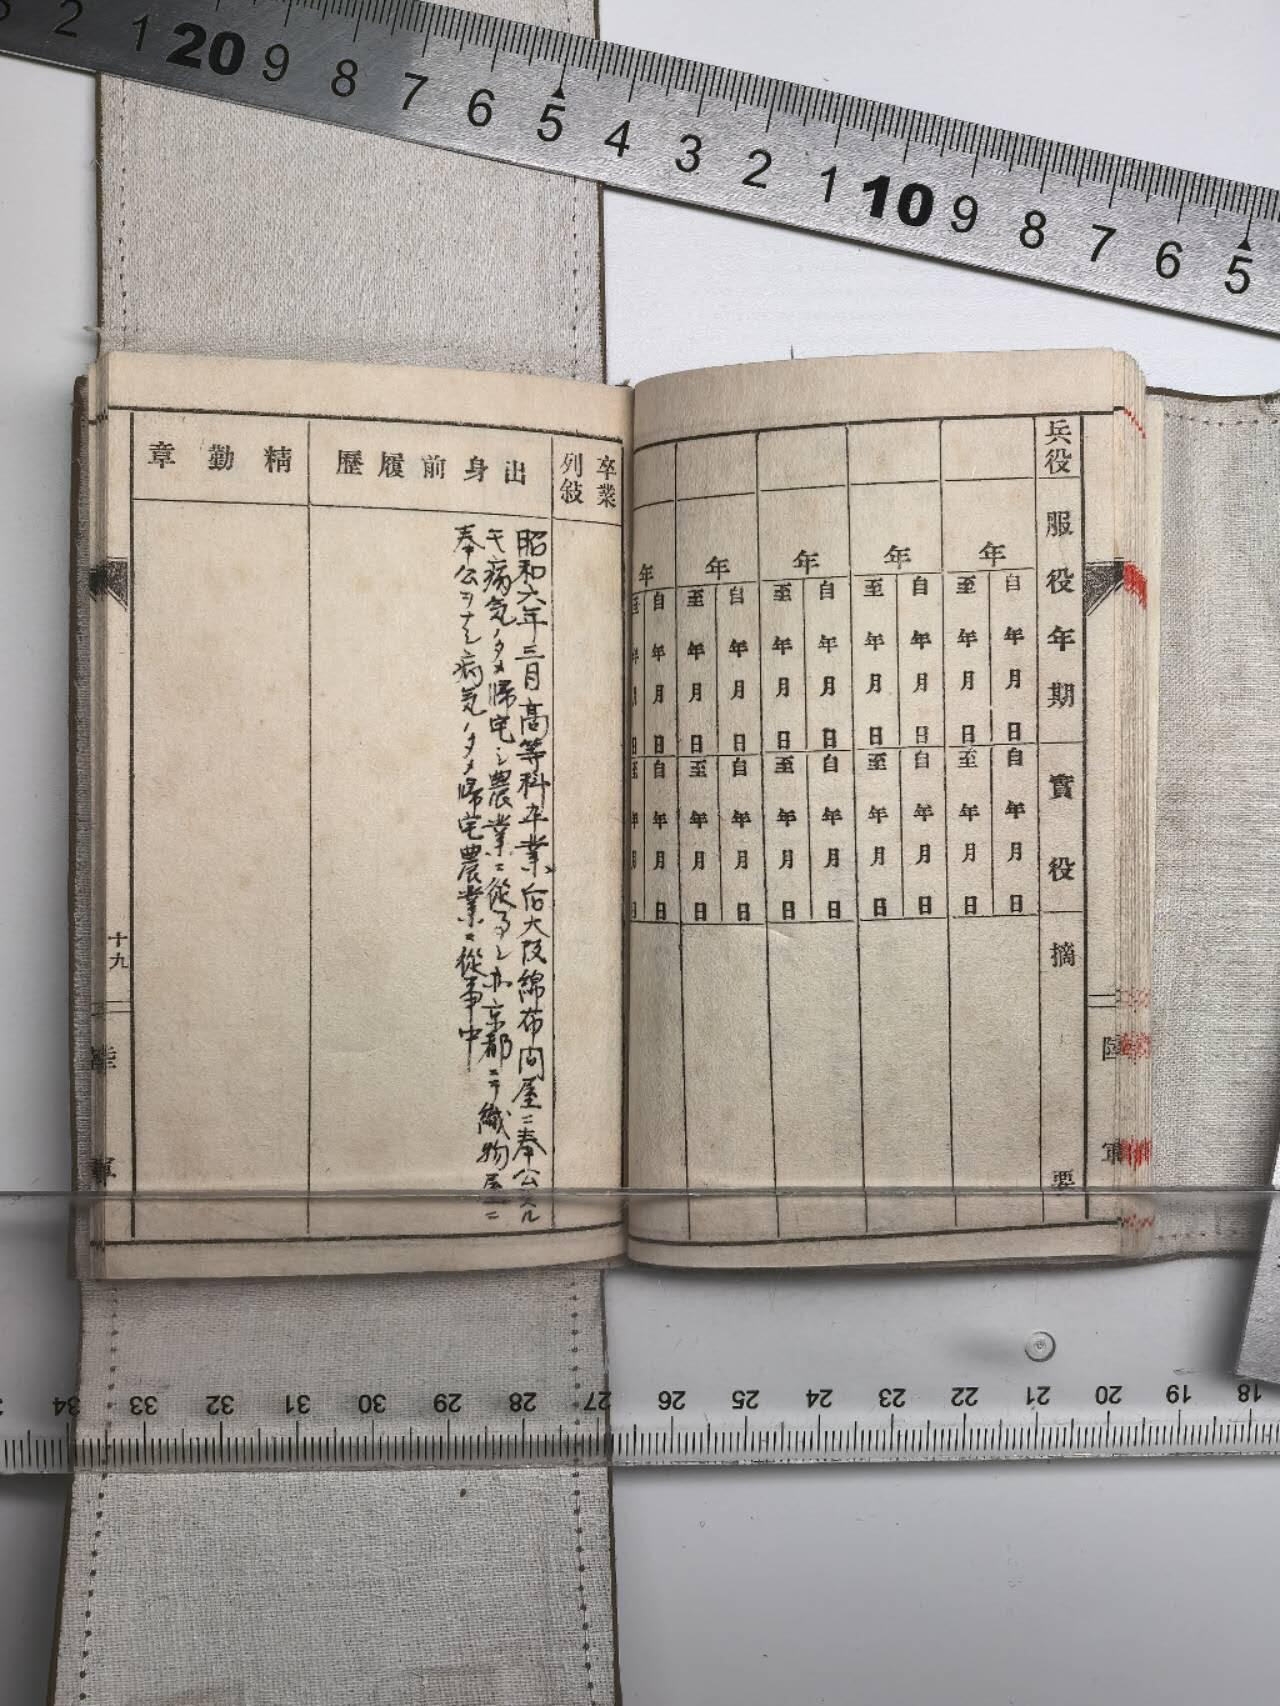 2 1 20 9 8 7 6 5 4 3 2 1 10 9 8 7 6 5
兵役
服役年期
實役
摘要
年
自 年 月 日
至 年 月 日
自 年 月 日
至 年 月 日
年
自 年 月 日
至 年 月 日
自 年 月 日
至 年 月 日
年
自 年 月 日
至 年 月 日
自 年 月 日
至 年 月 日
年
自 年 月 日
至 年 月 日
自 年 月 日
至 年 月 日
年
自 年 月 日
至 年 月 日
自 年 月 日
至 年 月 日
陸軍
卒業
列敍
出身前履歷
昭和六年三月高等科卒業后大阪綿布問屋ニ奉公スル
モ病気ノタメ帰宅シ農業ニ從事シ亦京都ニテ織物屋ニ
奉公ヲナシ病気ノタメ帰宅農業ニ從事中
精勤章
十九
陸軍
34 33 32 31 30 29 28 27 26 25 24 23 22 21 20 19 18